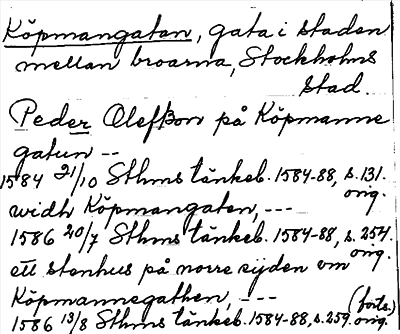 Köpmangatan, gata i staden
mellan broarna, Stockholms
stad.
Peder Olefßon på Köpmanne
gatun --
1584 21/10 Sthms tänkeb. 1584-88, s. 131.
orig.
widh Köpmangaten, ---
1586 20/7 Sthms tänkeb. 1584-88, s. 254.
orig.
ett stenhus på norre sijden om
Köpmannegathen, --- (forts.)
1586 13/8 Sthms tänkeb. 1584-88, s. 259. orig.